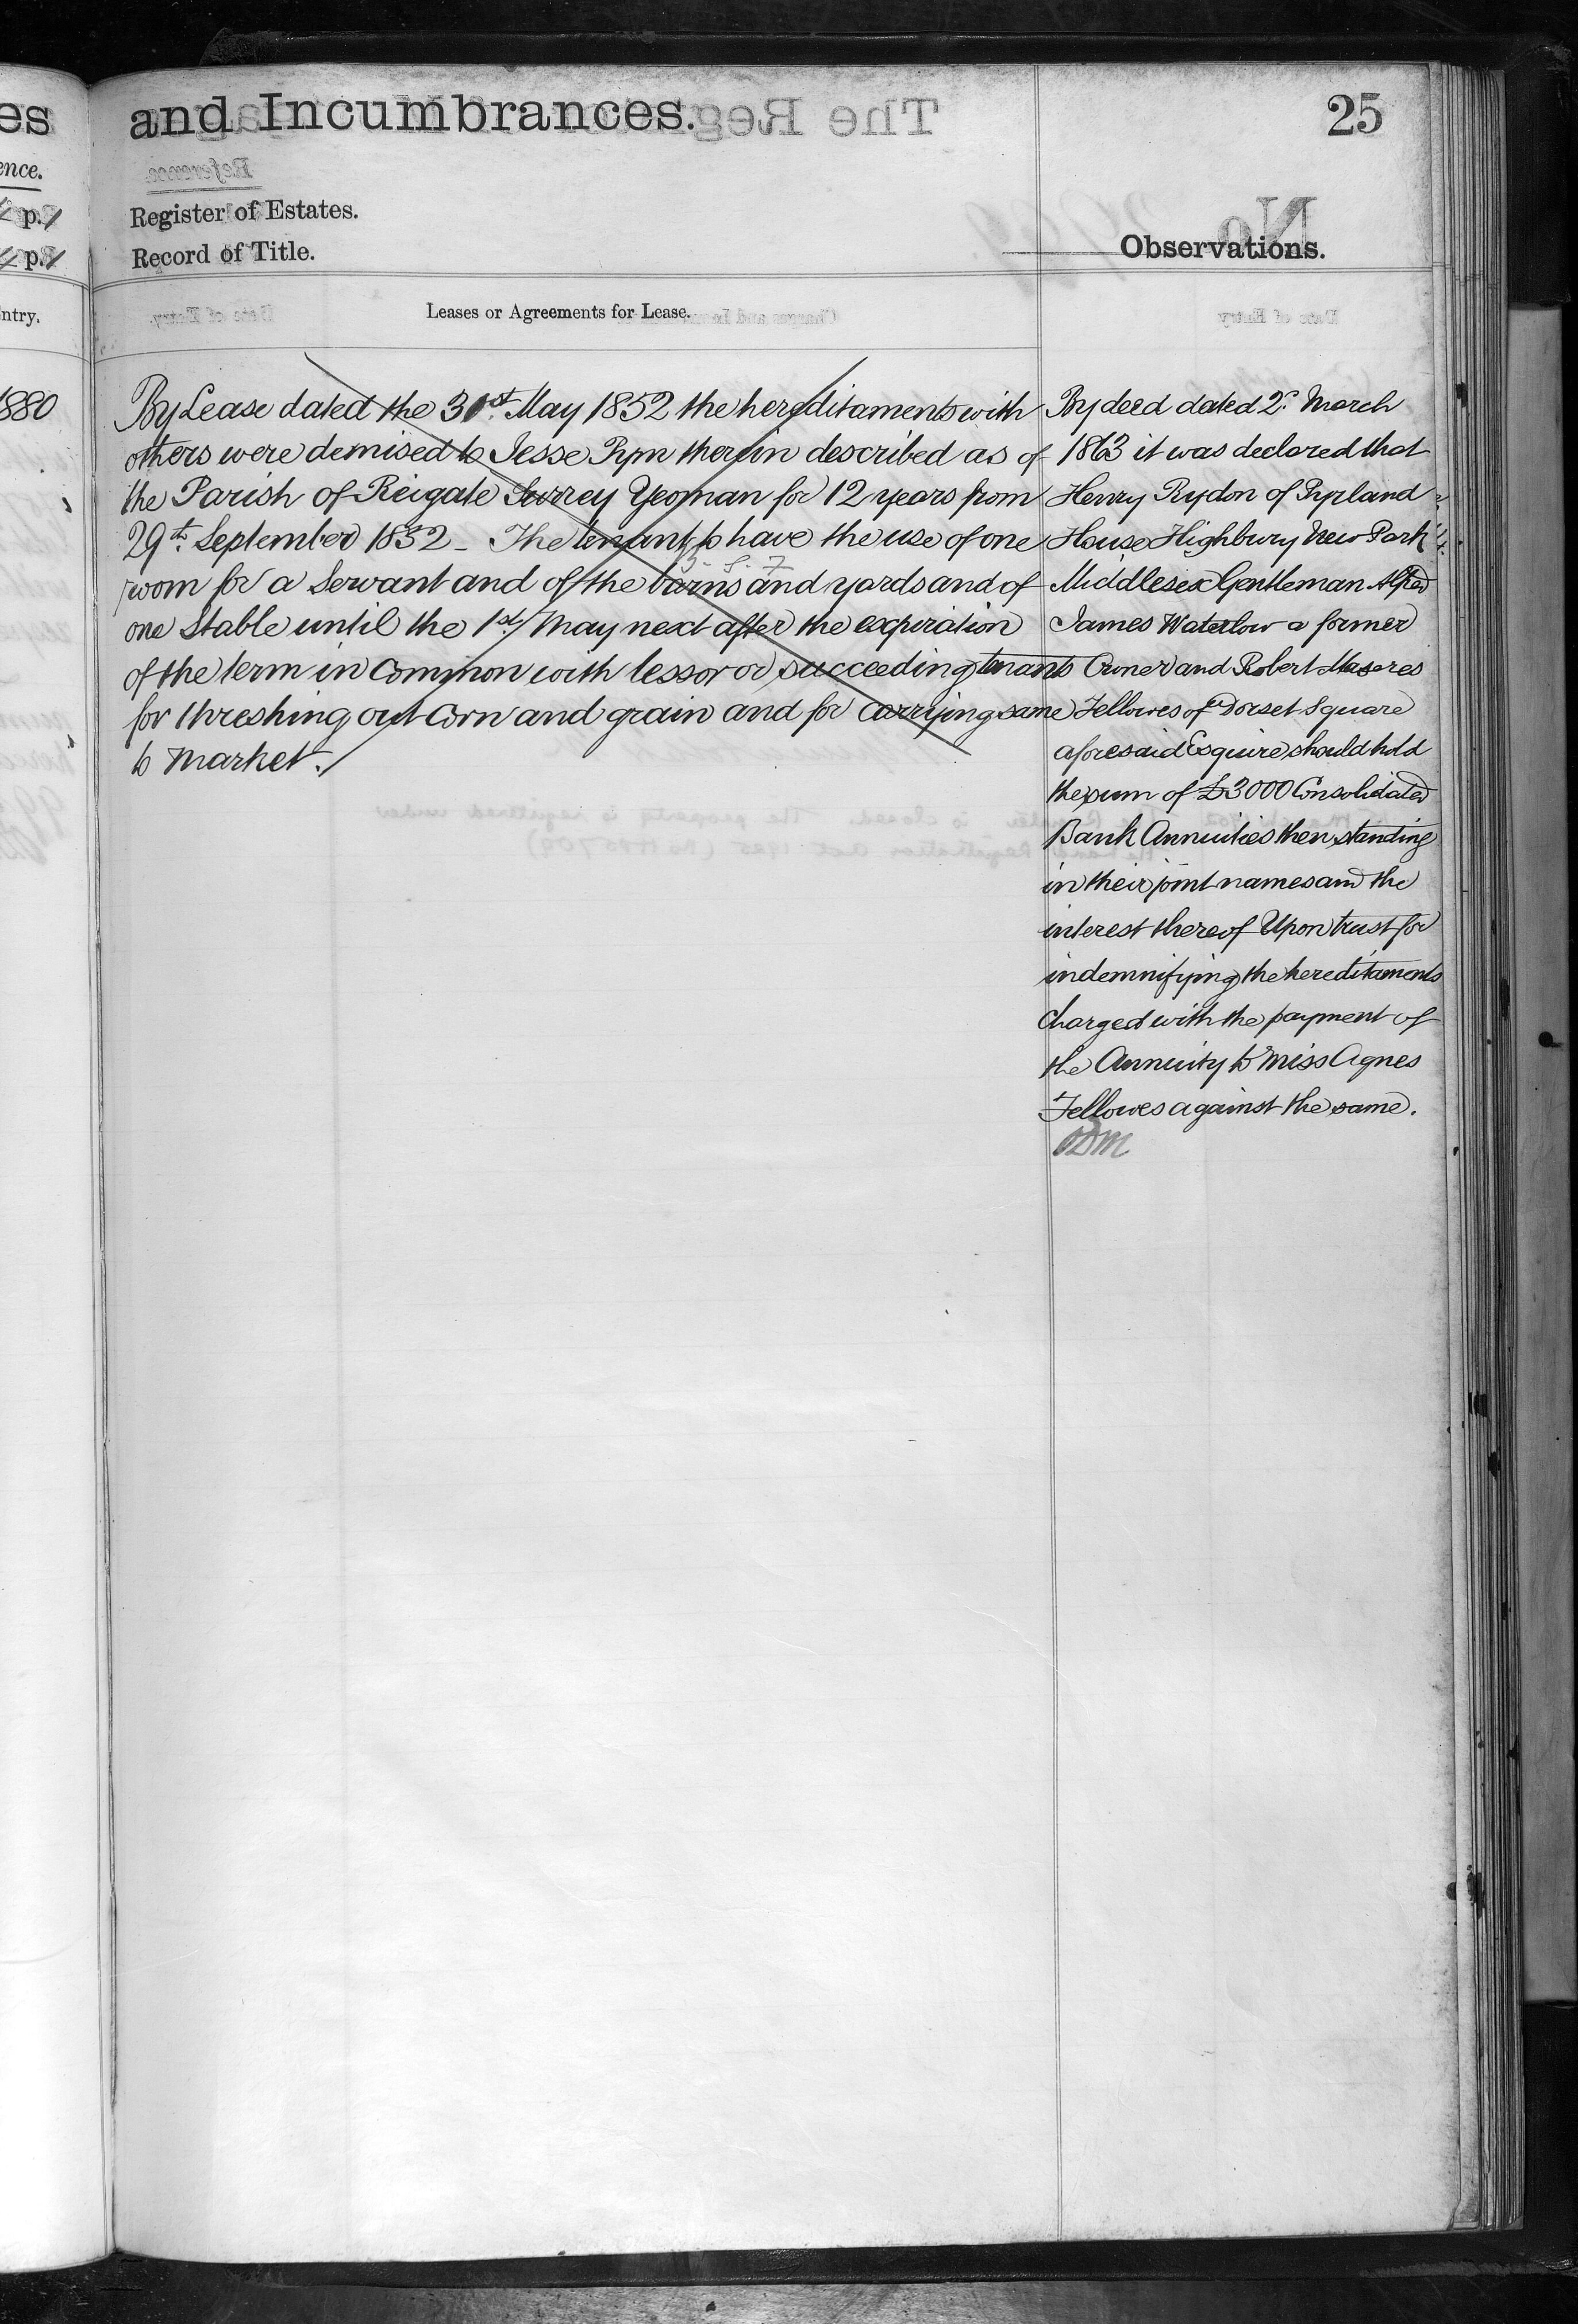 es
ence.
p. 1
p. 1
ntry.
1880
and Incumbrances.
25
Register of Estates.
Record of Title.
Observations.
Leases or Agreements for Lease.
By Lease dated the 31st. May 1852 the hereditaments with
others were demised to Jesse Pym therein described as of
the Parish of Reigate Surrey Yeoman for 12 years from
29th. September 1852 - The tenant to have the use of one
room for a Servant and of the barns and yards and of
one Stable until the 1st. May next after the expiration
of the term in Common with lessor or succeeding tenants
for threshing out Corn and grain and for Carrying same
to Market.
By deed dated 2d. March
1863 it was declared that
Henry Rydon of Pyrland
House Highbury New Park
Middlesex Gentleman Alfred
James Waterlow a former
Owner and Robert Maseres
Fellowes of Dorset Square
aforesaid Esquire should hold
the sum of £3000 Consolidated
Bank Annuities then standing
in their joint names and the
interest thereof Upon trust for
indemnifying the hereditaments
Charged with the payment of
the Annuity to Miss Agnes
Fellowes against the same.